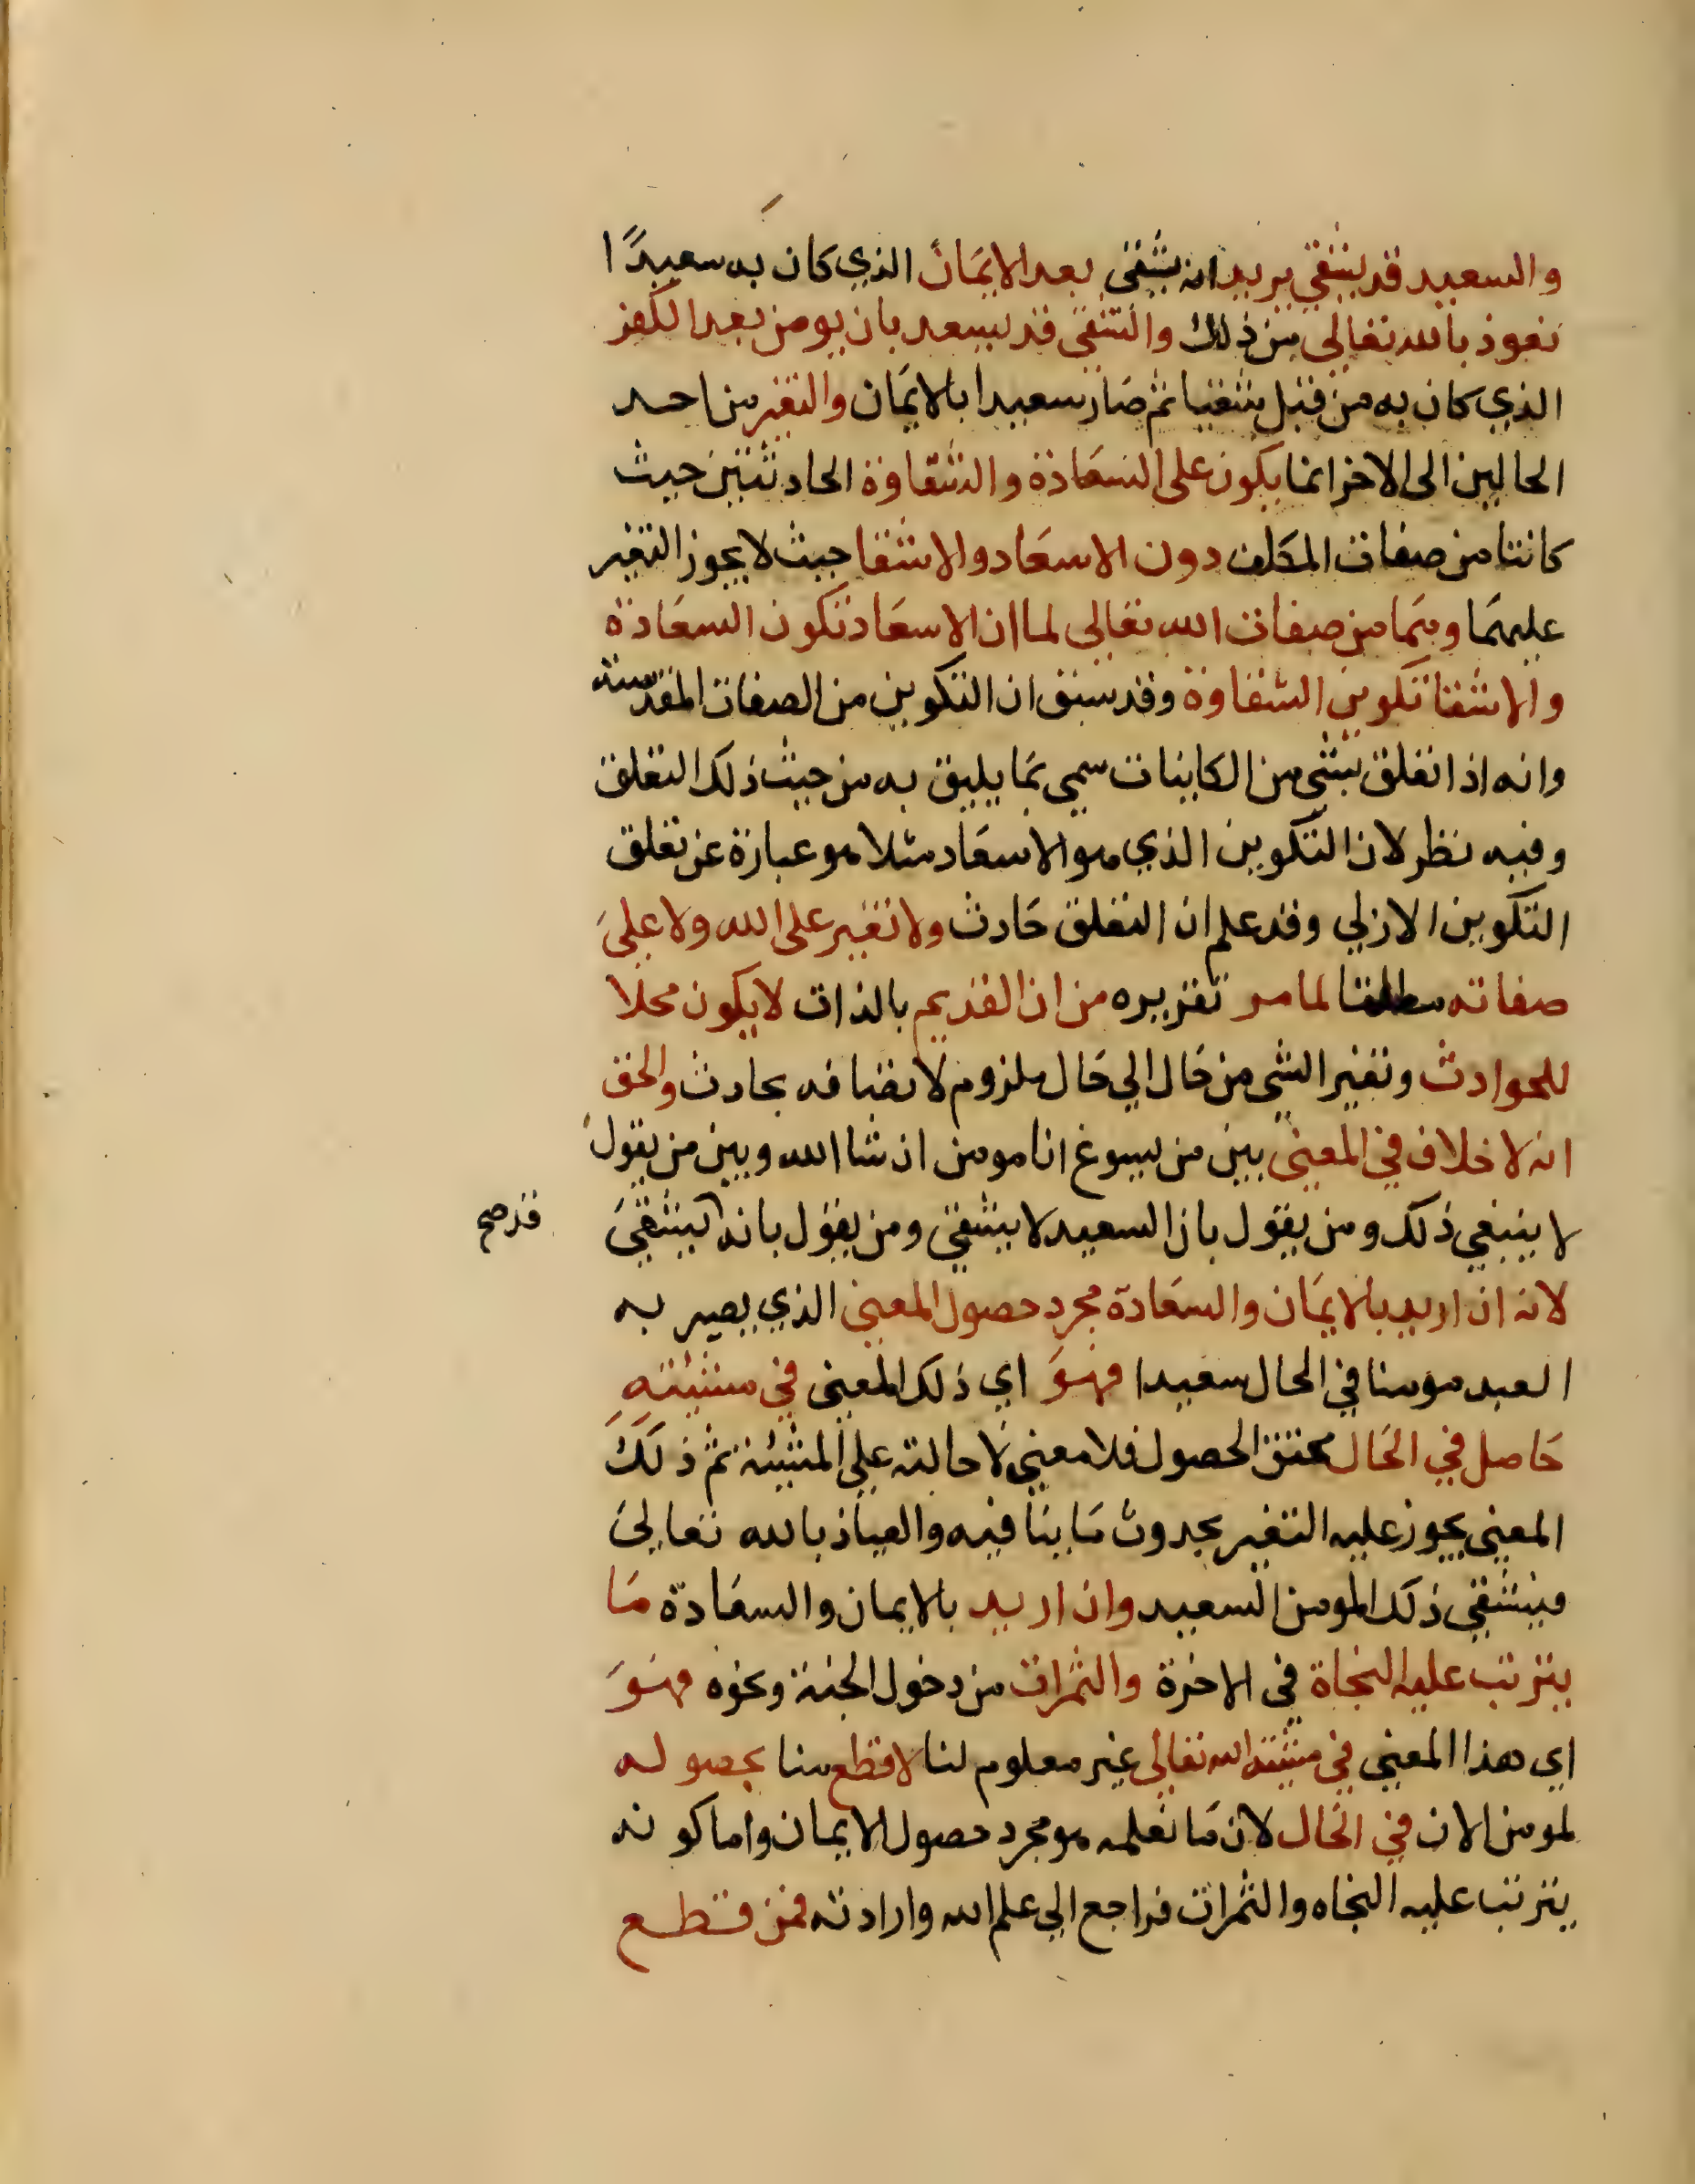 والسعيد قد يشقي يريد انه يشقى بعد الايمان الذي كان به سعيدًا
نعوذ بالله تعالى من ذلك والشقى قد يسعد بان يومن بعد الكفر
الذي كان به من قبل شقيا ثم صار سعيدا بالايمان والتغير من احد
الحالين الى الاخر انما يكون على السعادة والشقاوة الحادثتين حيث
كانتا من صفات المكلف دون الاسعاد والاشقا حيث لا يجوز التغير
عليهما وهما من صفات الله تعالى لما ان الاسعاد تكون السعادة
والاشقا تكوين الشقاوة وقد سبق ان التكوين من الصفات المقدسة
وانه اذا تعلق بشي من الكاينات سمي بما يليق به من حيث ذلك التعلق
وفيه نظر لان التكوين الذي هو الاسعاد مثلا هو عبارة عن تعلق
التكوين الازلي وقد علم ان التعلق حادث ولا تغير على الله ولا على
صفاته مطلقا لما مر تقريره من ان القديم بالذات لا يكون محلا
للحوادث وتغير الشي من حال الي حال ملزوم لاتصافه بحادث والحق
انه لا خلاف في المعنى بين من يسوغ انا مومن ان شا الله وبين من يقول
لا ينبغي ذلك ومن يقول بان السعيد لا يشقى ومن يقول بانه يشقى
قد صح
لانه ان اريد بالايمان والسعادة مجرد حصول المعنى الذي يصير به
العبد مومنا في الحال سعيدا فهو اي ذلك المعنى في مشيته
حاصل في الحال محقق الحصول فلا معنى لاحالته على المشيئة ثم ذلك
المعنى يجوز عليه التغير بحدوث ما ينافيه والعياذ بالله تعالى
فيشقى ذلك المومن السعيد وان اريد بالايمان والسعادة ما
يترتب عليه النجاة في الاخرة والثمرات من دخول الجنة ونحوه فهو
اي هذا المعنى في مشيئة الله تعالى غير معلوم لنا لا قطع منا بحصوله
لمومن الان في الحال لان ما نعلمه هو مجرد حصول الايمان واما كونه
يترتب عليه النجاه والثمرات فراجع الي علم الله وارادته فمن قطع